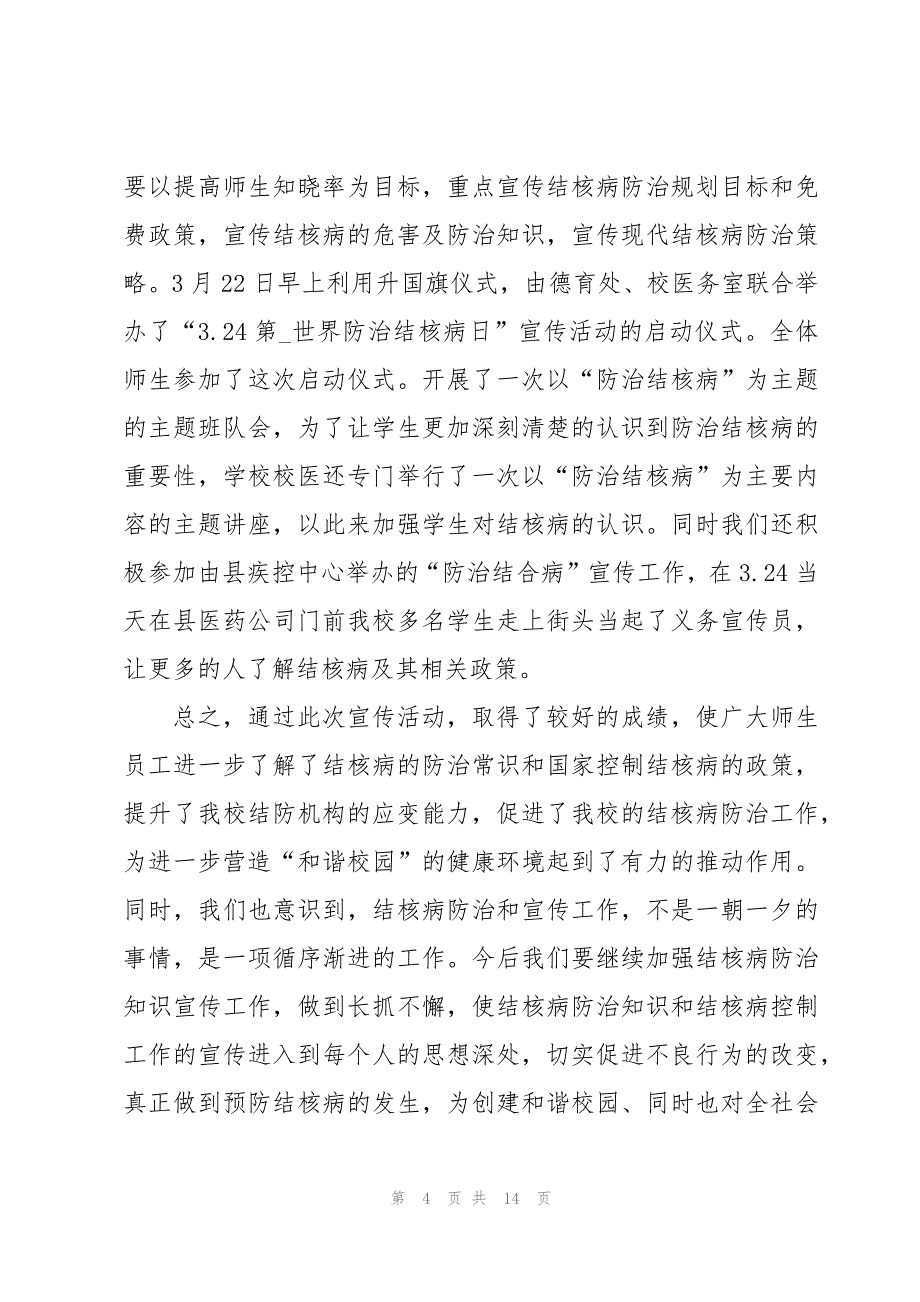 要以提高师生知晓率为目标，重点宣传结核病防治规划目标和免
费政策，宣传结核病的危害及防治知识，宣传现代结核病防治策
略。3 月 22 日早上利用升国旗仪式，由德育处、校医务室联合举
办了“3.24 第_世界防治结核病日”宣传活动的启动仪式。全体
师生参加了这次启动仪式。开展了一次以“防治结核病”为主题
的主题班队会，为了让学生更加深刻清楚的认识到防治结核病的
重要性，学校校医还专门举行了一次以“防治结核病”为主要内
容的主题讲座，以此来加强学生对结核病的认识。同时我们还积
极参加由县疾控中心举办的“防治结合病”宣传工作，在 3.24 当
天在县医药公司门前我校多名学生走上街头当起了义务宣传员，
让更多的人了解结核病及其相关政策。
总之，通过此次宣传活动，取得了较好的成绩，使广大师生
员工进一步了解了结核病的防治常识和国家控制结核病的政策，
提升了我校结防机构的应变能力，促进了我校的结核病防治工作，
为进一步营造“和谐校园”的健康环境起到了有力的推动作用。
同时，我们也意识到，结核病防治和宣传工作，不是一朝一夕的
事情，是一项循序渐进的工作。今后我们要继续加强结核病防治
知识宣传工作，做到长抓不懈，使结核病防治知识和结核病控制
工作的宣传进入到每个人的思想深处，切实促进不良行为的改变，
真正做到预防结核病的发生，为创建和谐校园、同时也对全社会
第 4 页 共 14 页